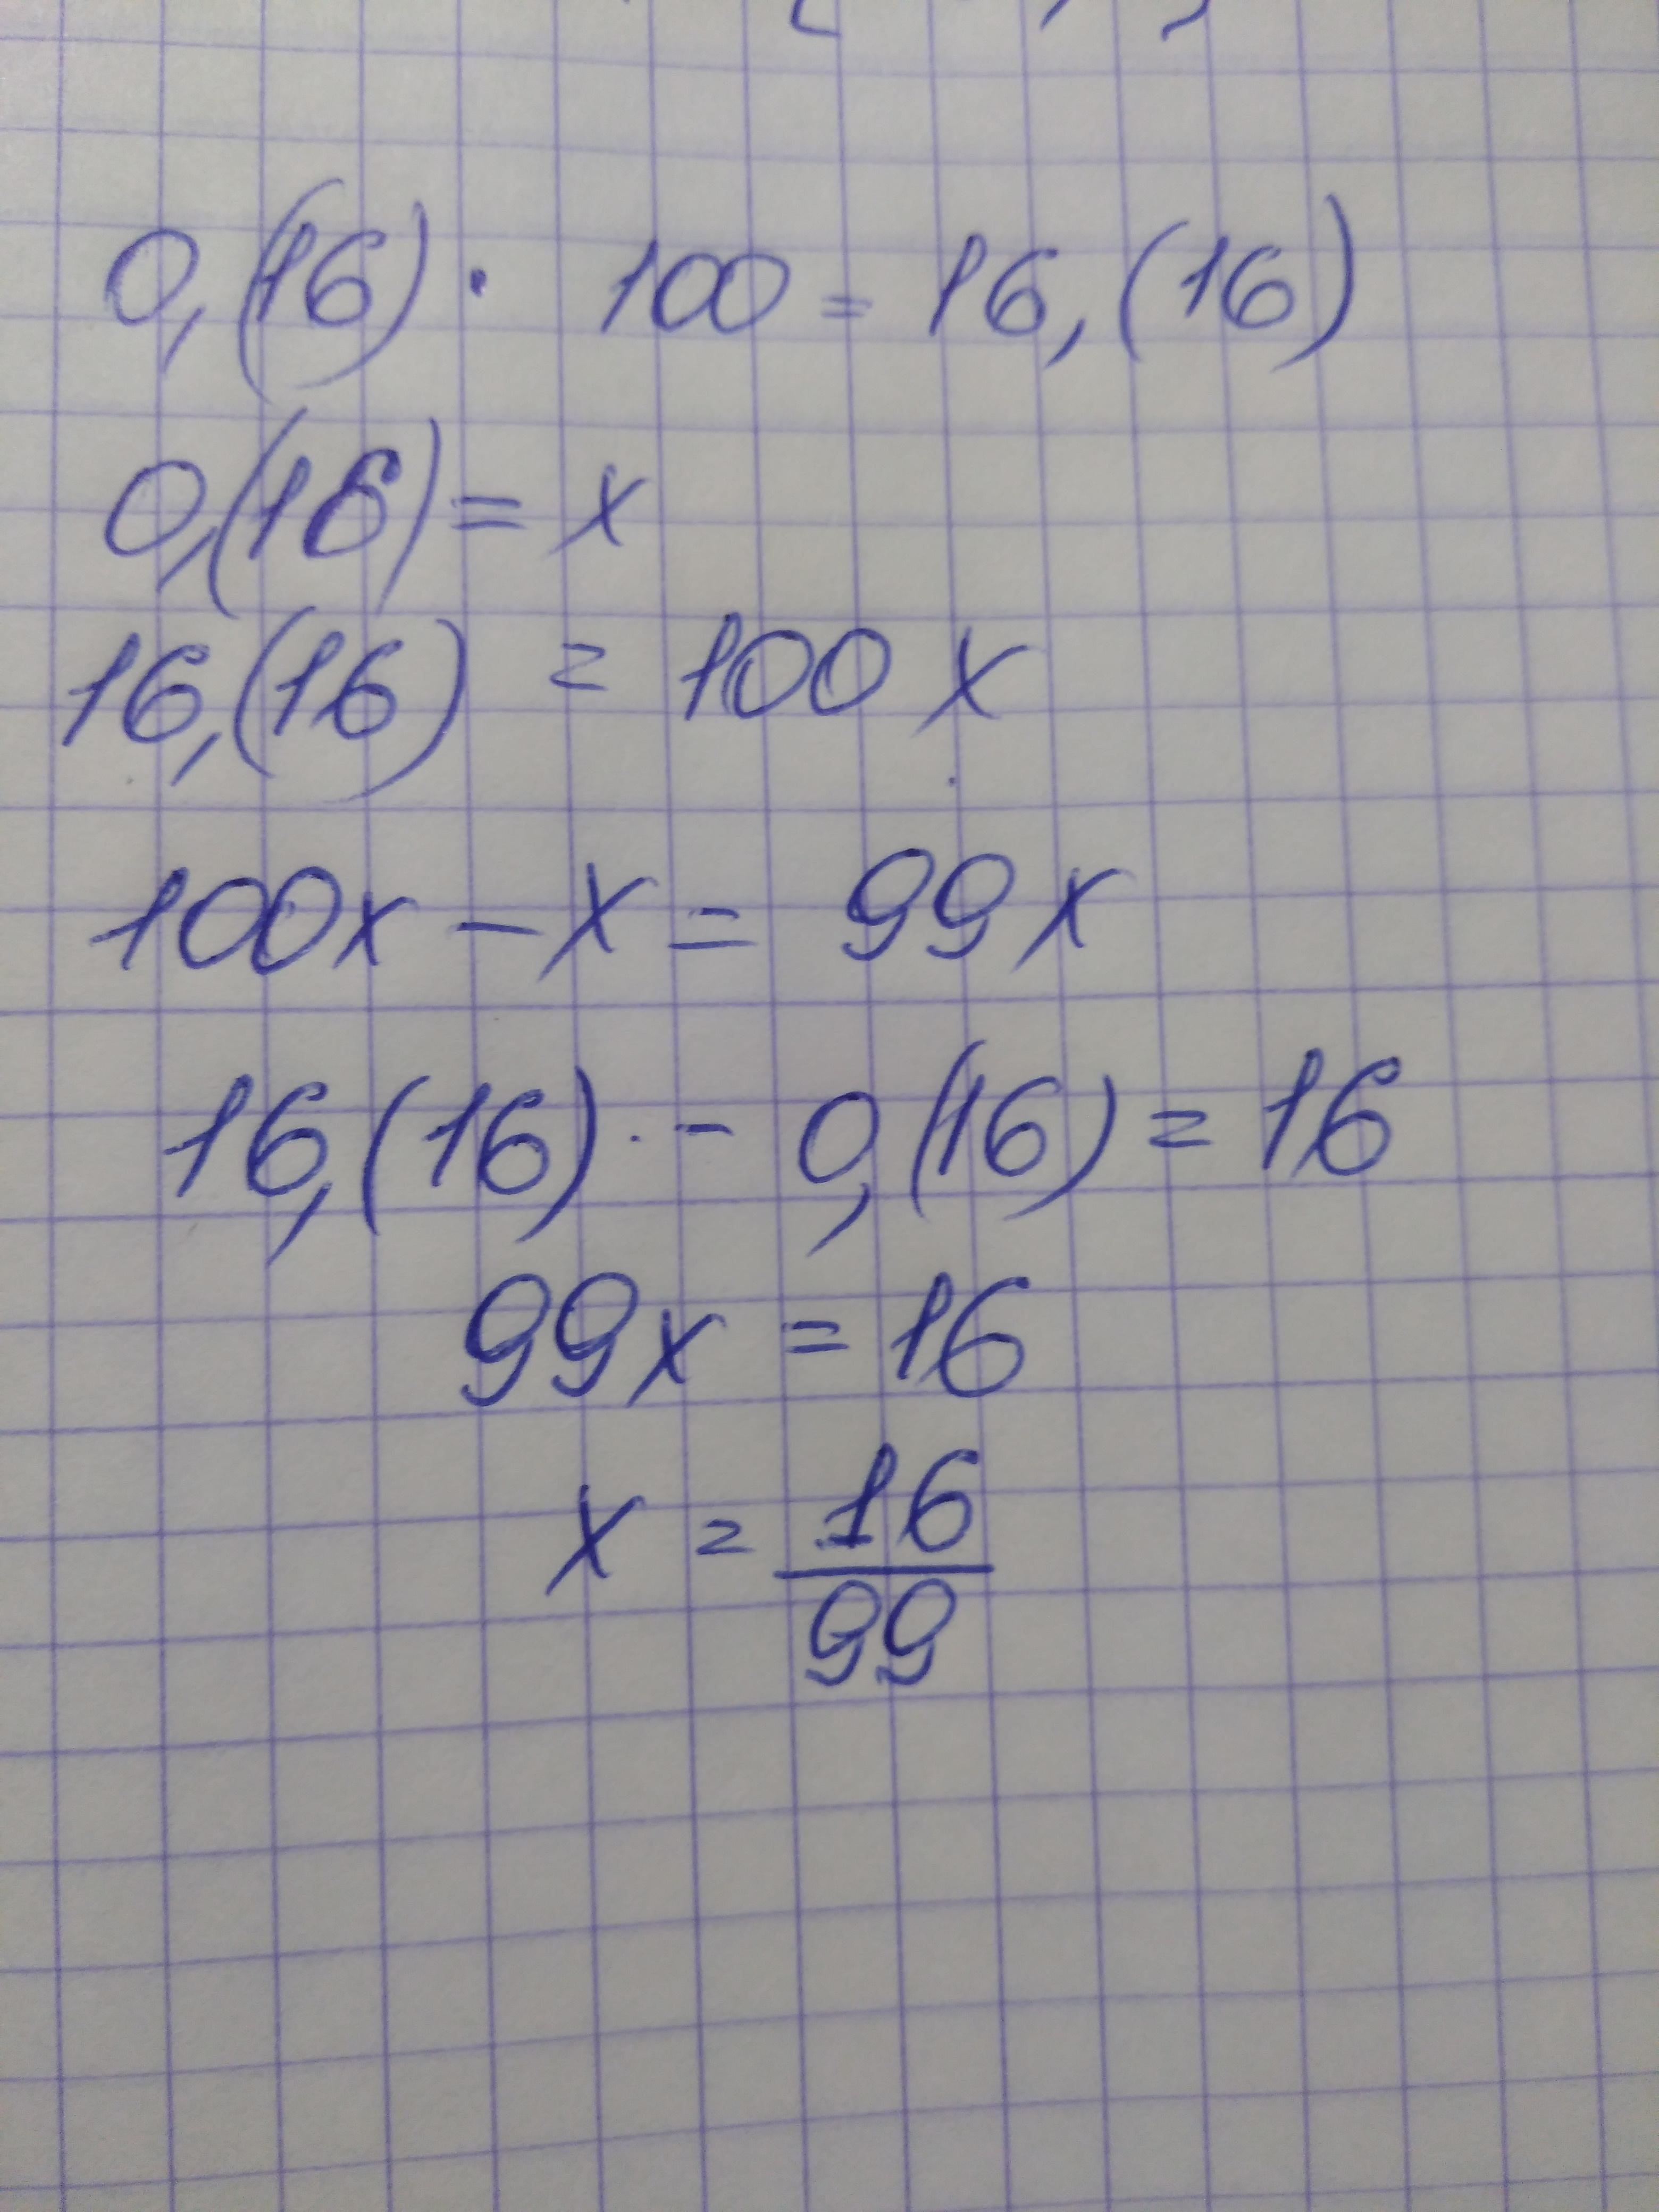 0,(16) · 100 = 16,(16)
0,(16) = x
16,(16) = 100 x
100x - x = 99 x
16,(16) - 0,(16) = 16
99x = 16
x = 16/99